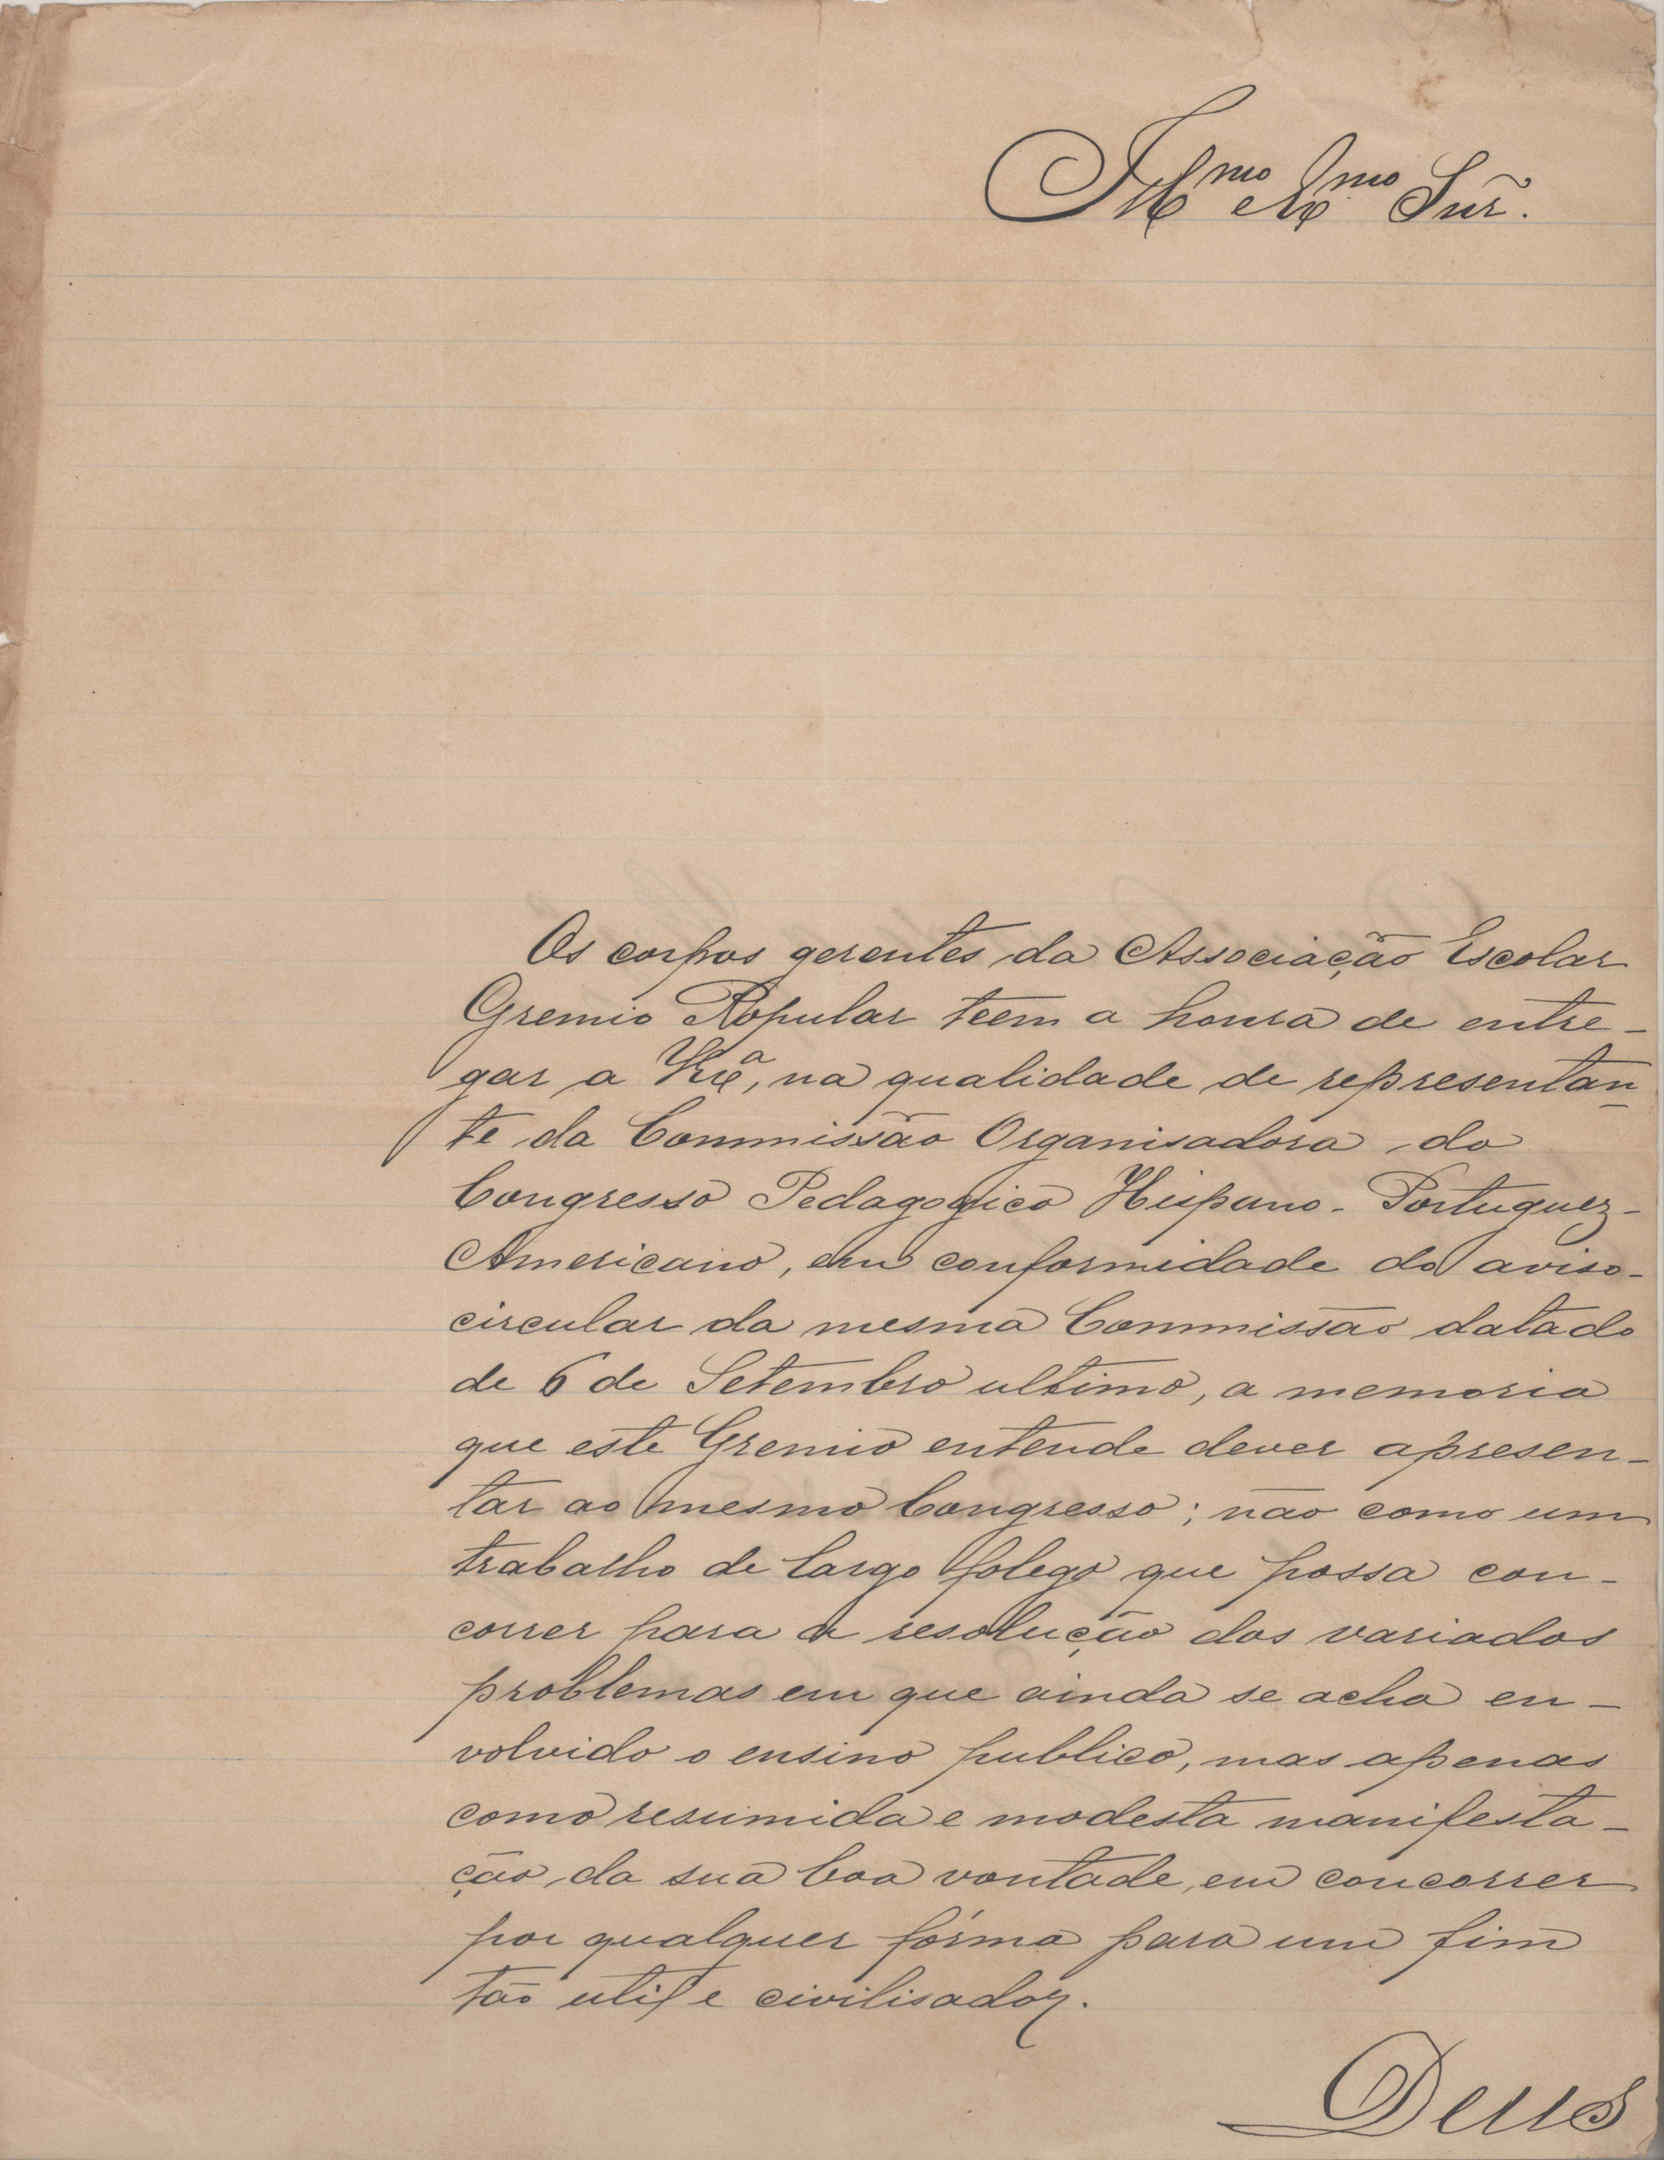 Illmo Exmo Snr.
Os corpos gerentes da Associação Escolar
Gremio Popular teem a honra de entre-
gar a V. Exª, na qualidade de representan-
te da Commissão Organisadora do
Congresso Pedagogico Hispano-Portuguez-
Americano, em conformidade do aviso-
circular da mesma Commissão datado
de 6 de Setembro ultimo, a memoria
que este Gremio entende dever apresen-
tar ao mesmo Congresso; não como um
trabalho de largo folego que possa con-
correr para a resolução dos variados
problemas em que ainda se acha en-
volvido o ensino publico, mas apenas
como resumida e modesta manifesta-
ção da sua boa vontade, em concorrer
por qualquer fórma para um fim
tão util e civilisador.
Deus